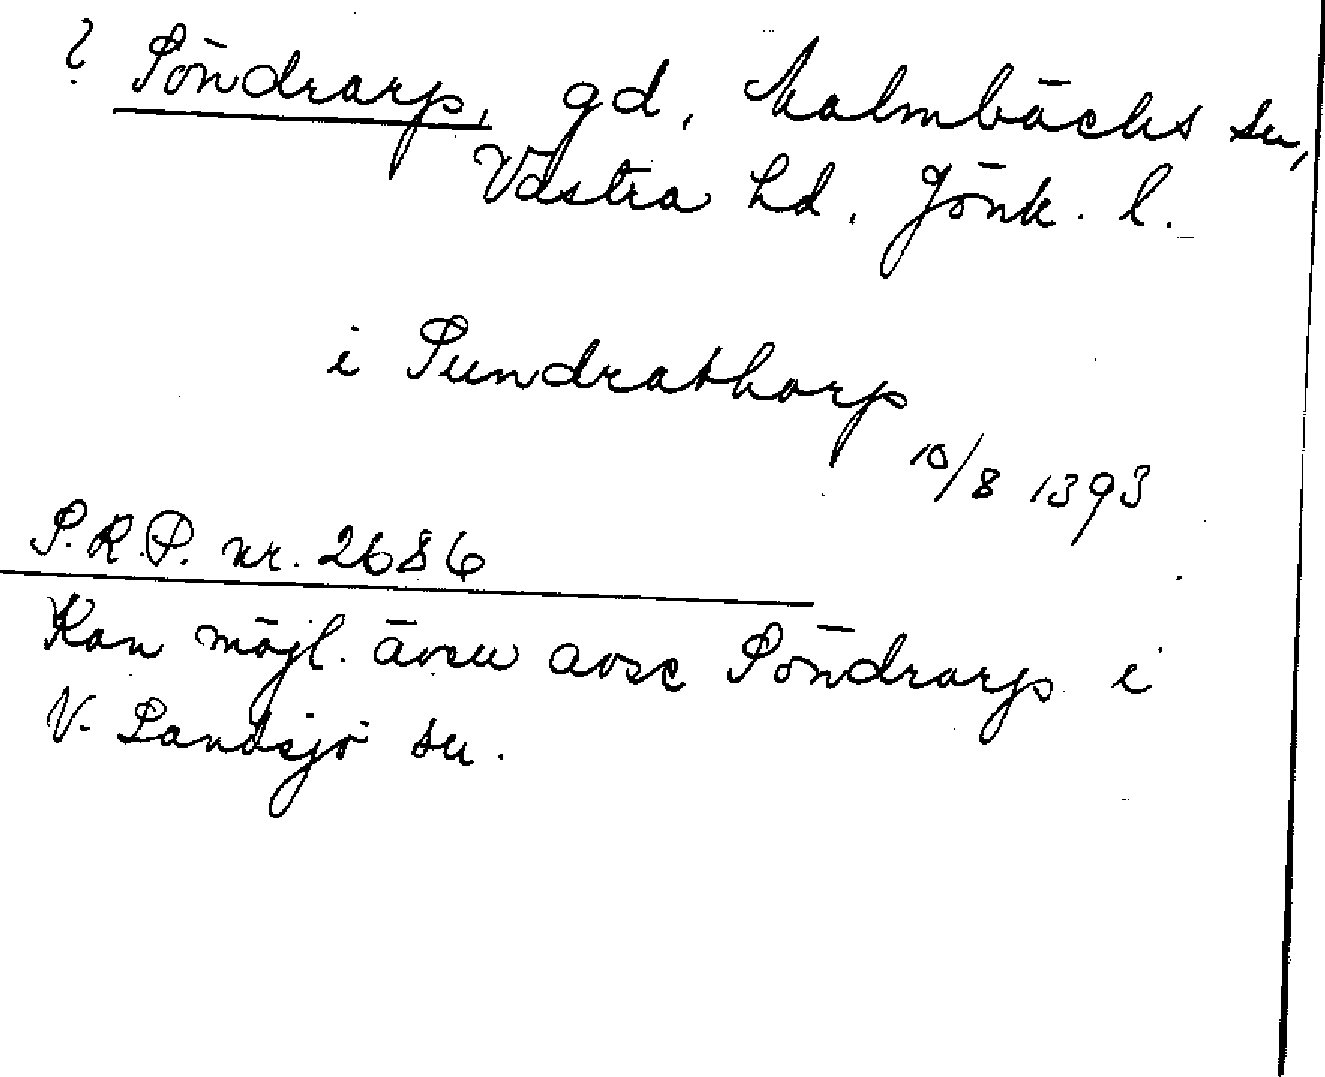 ? Söndrarp, gd, Malmbäcks sn,
Västra hd. Jönk. l.
i Sundrathorp
10/8 1393
S.R.P. nr. 2686
Kan möjl. även avse Söndrarp i
N. Sandsjö sn.